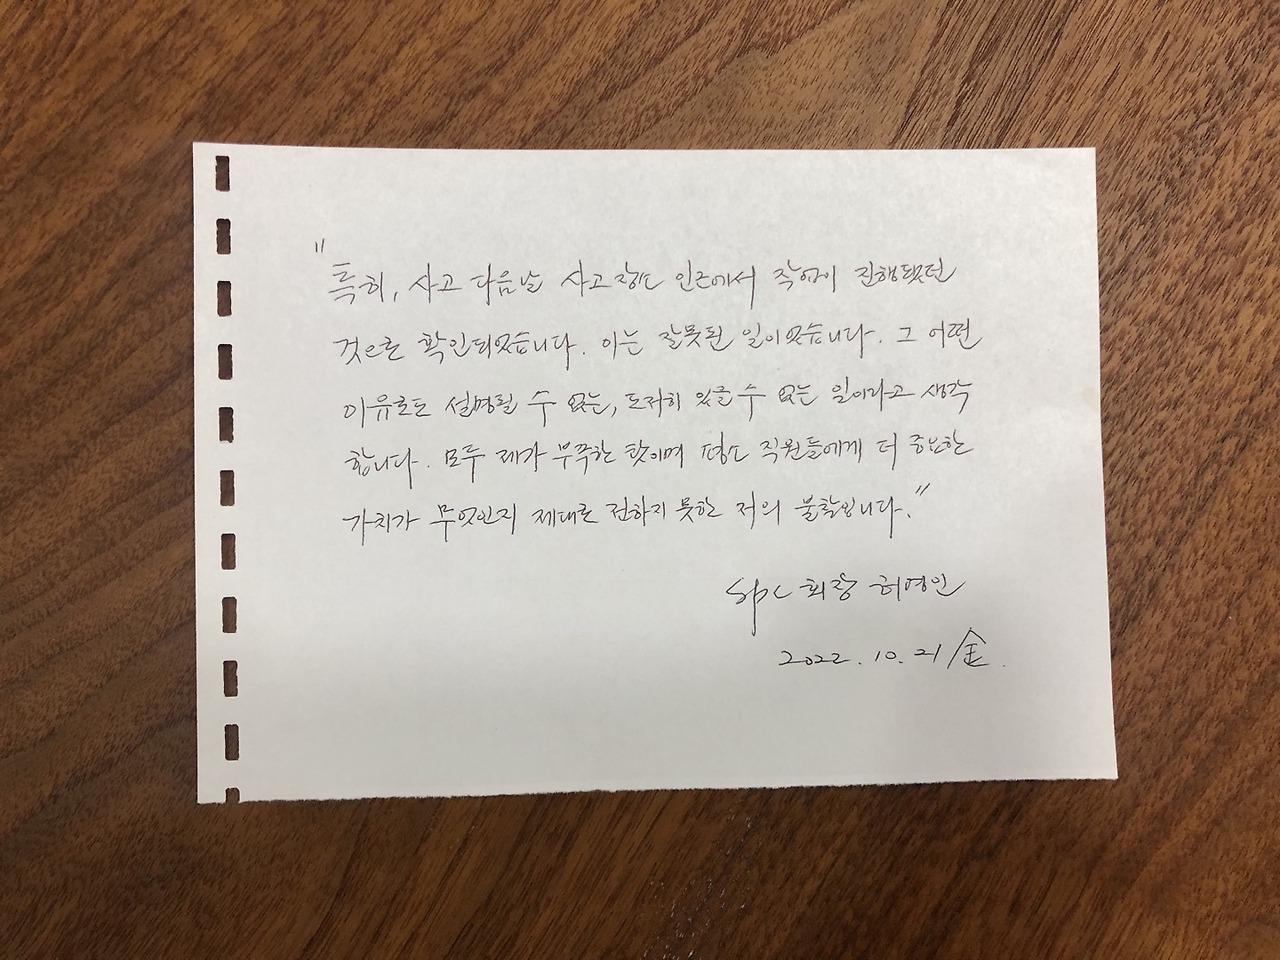 "특히, 사고 다음날 사고 장소 인근에서 작업이 진행됐던
것으로 확인되었습니다. 이는 잘못된 일이었습니다. 그 어떤
이유로도 설명될 수 없는, 도저히 있을 수 없는 일이라고 생각
합니다. 모두 제가 부족한 탓이며 평소 직원들에게 더 중요한
가치가 무엇인지 제대로 전하지 못한 저의 불찰입니다."
SPC 회장 허영인
2022. 10. 21/金.